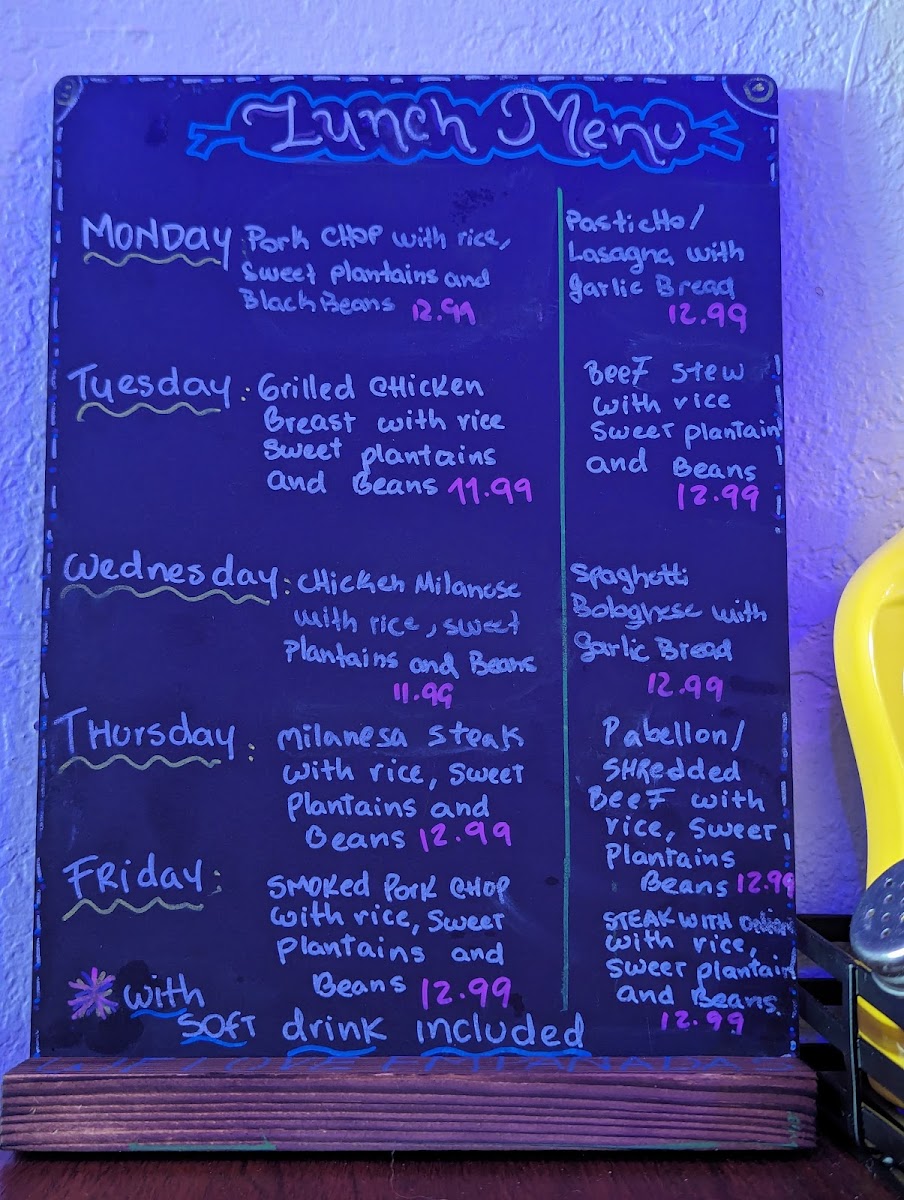 Lunch Menu
MONDAY Pork CHOP with rice,
sweet plantains and
Black Beans 12.99
Pasticho/
Lasagna with
garlic Bread
12.99
Tuesday: Grilled CHicken
Breast with rice
sweet plantains
and Beans 11.99
Beef stew
with rice
sweet plantain
and Beans
12.99
Wednesday: CHicken Milanese
with rice, sweet
plantains and Beans
11.99
Spaghetti
Bolognese with
garlic Bread
12.99
THursday: Milanesa steak
with rice, sweet
plantains and
Beans 12.99
Pabellon/
SHRedded
Beef with
rice, sweet
plantains
Beans 12.99
FRiday: SMOKed Pork CHOP
with rice, sweet
plantains and
Beans 12.99
STEAK WITH onion
with rice,
sweet plantain
and Beans.
12.99
with
SOFT drink included